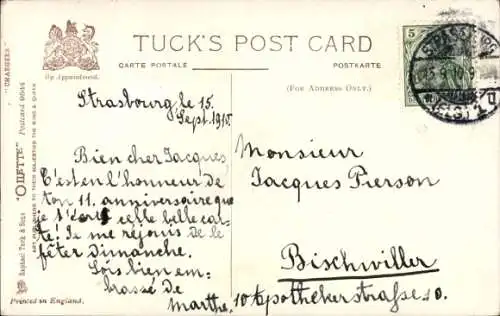 TUCK'S POST CARD
CARTE POSTALE
POSTKARTE
(FOR ADDRESS ONLY.)
By Appointment.
"OILETTE"
Postcard
Raphael Tuck & Sons
ART PUBLISHERS TO THEIR MAJESTIES THE KING & QUEEN
Printed in England.
5
STRASSBURG
15.9.10.9
(ELS)
Strasbourg, le 15.
Sept. 1910.
Bien cher Jacques,
C'est en l'honneur de
ton 11. anniversaire que
je t'écris cette belle car-
te! Je me réjouis de te
fêter dimanche.
Sois bien em-
brassé de
Marthe.
Monsieur
Jacques Pierson
Bischwiller
10 Apothekerstraße 10.